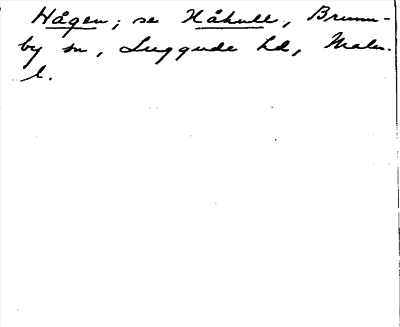 Hågen; se Håkull, Brunn-
by sn, Luggude hd, Malm.
l.